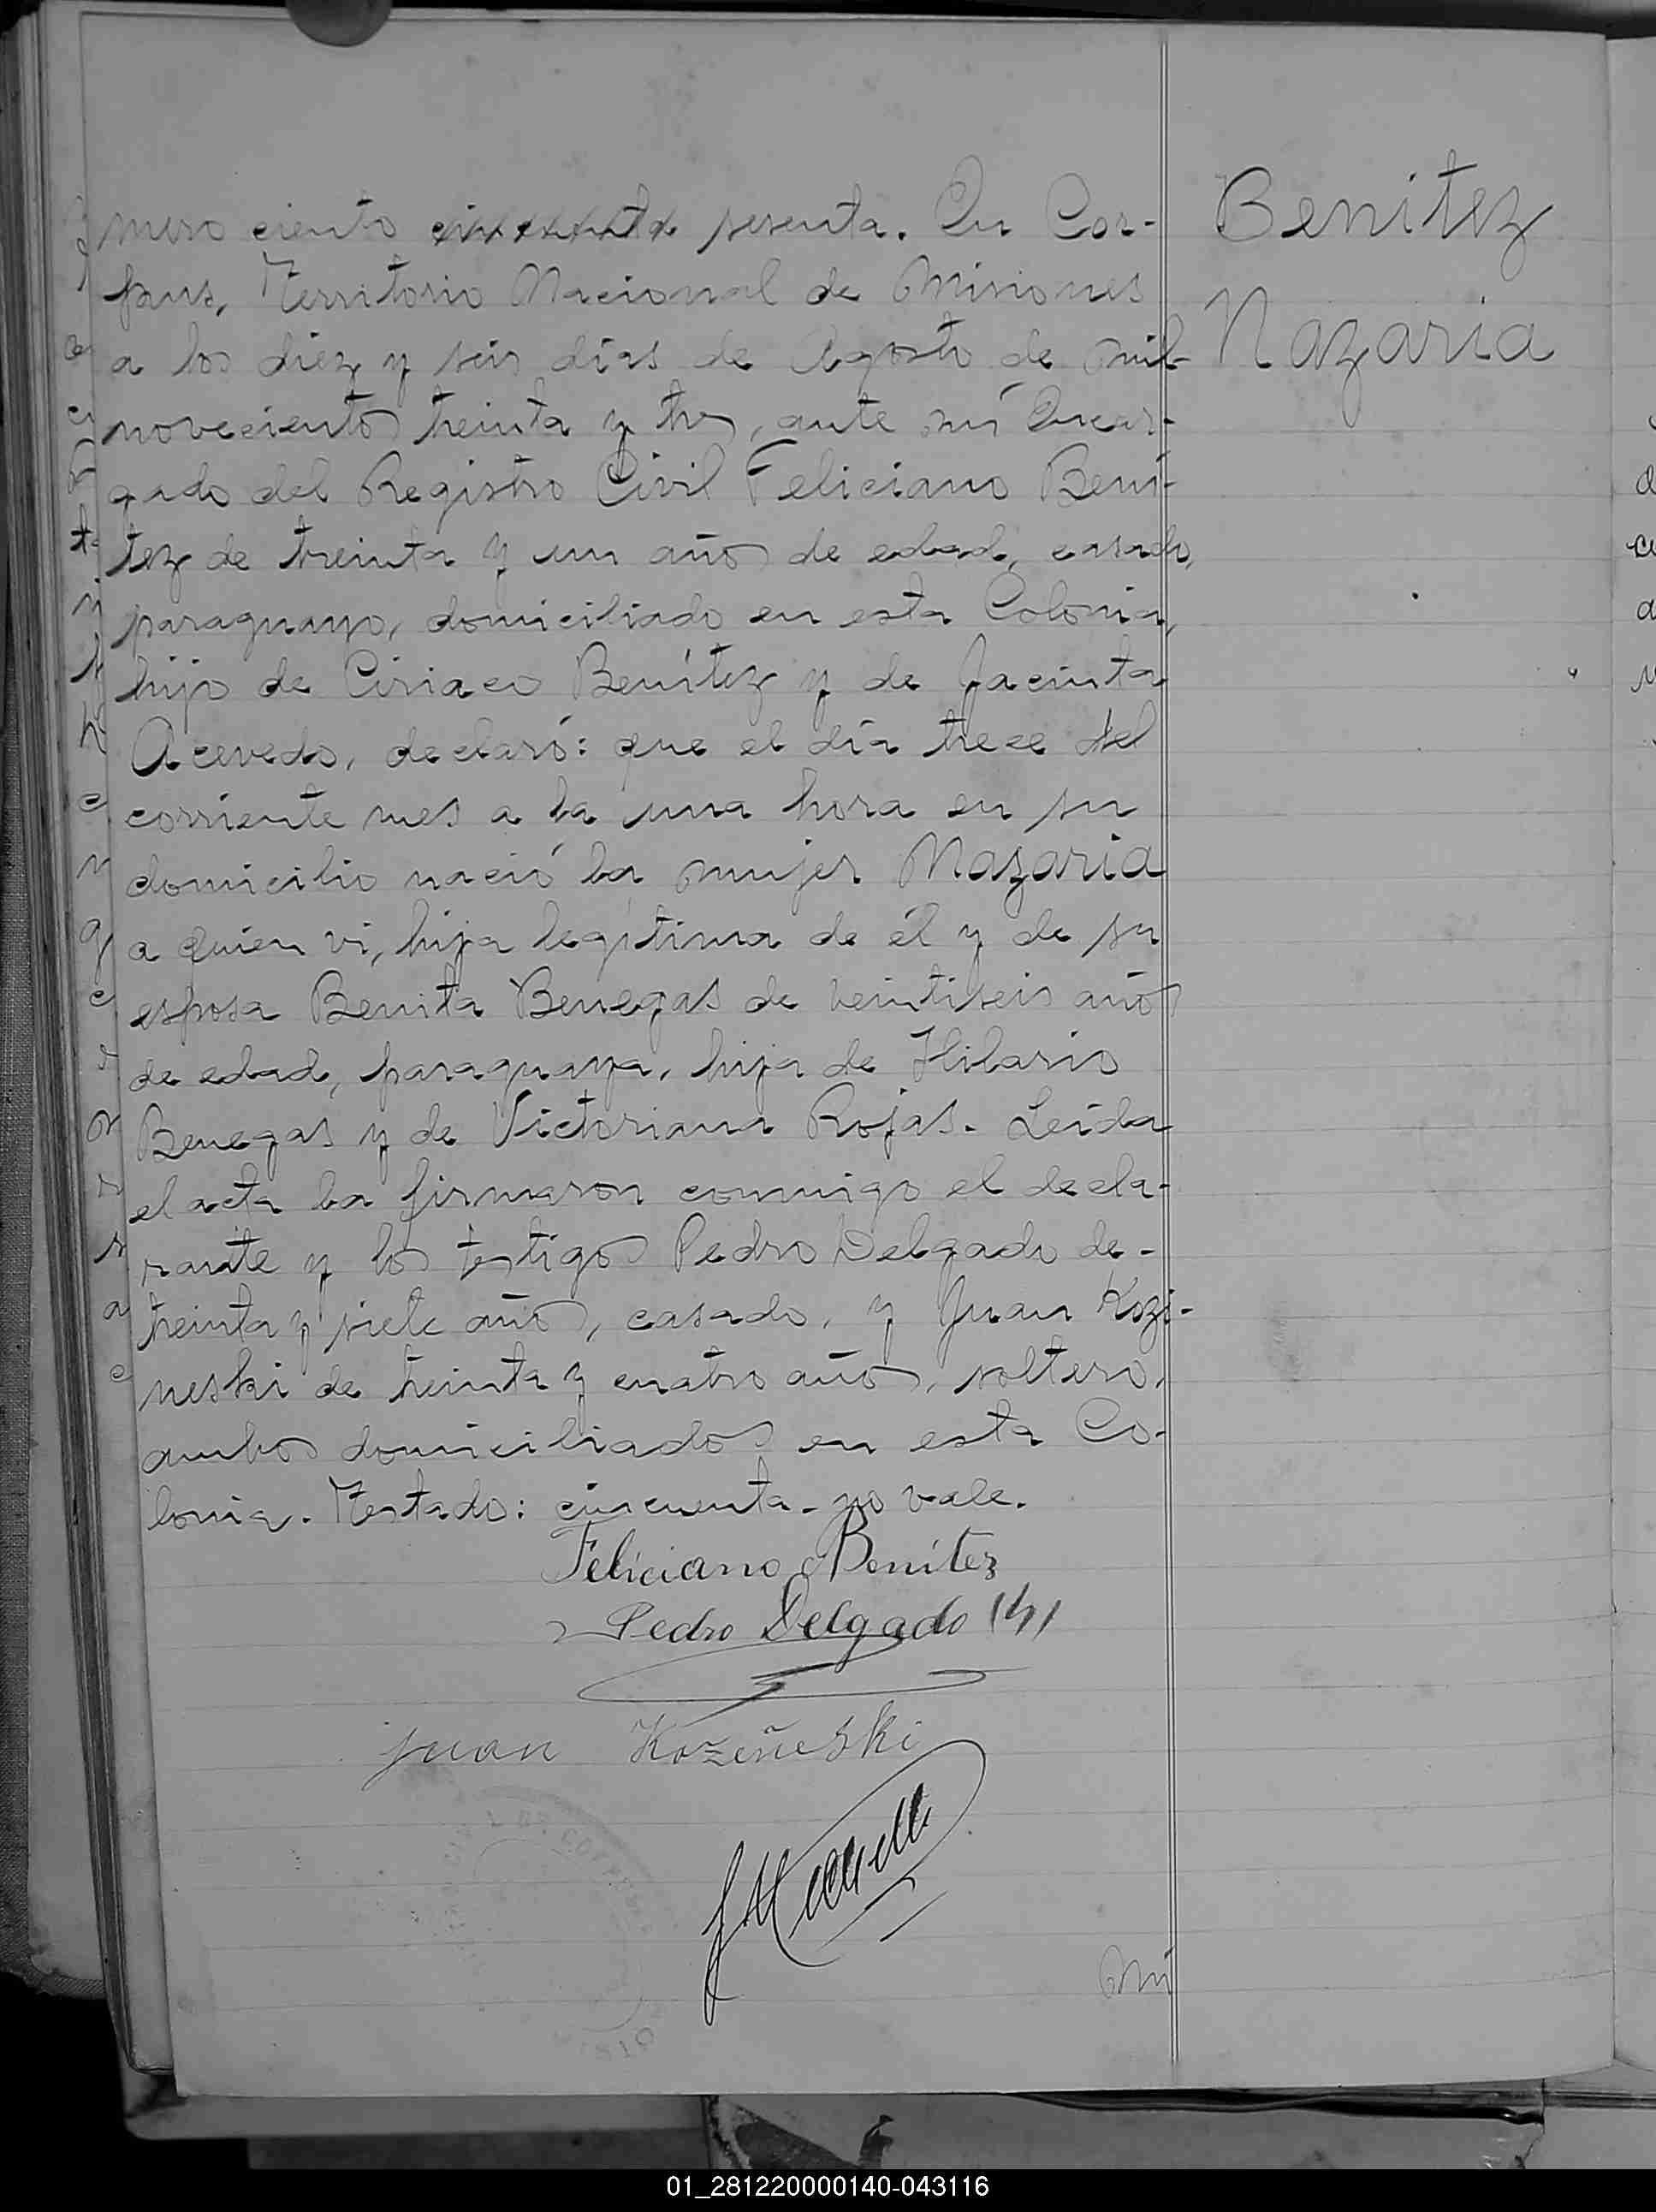 Benitez
Nazaria
mero ciento cincuenta sesenta. En Cor-
pus, Territorio Nacional de Misiones
a los diez y seis días de Agosto de mil
novecientos treinta y tres, ante mí Encar-
gado del Registro Civil Feliciano Bení-
tez de treinta y un años de edad, casado,
paraguayo, domiciliado en esta Colonia,
hijo de Ciriaco Benítez y de Jacinta
Acevedo, declaró: que el día trece del
corriente mes a la una hora en su
domicilio nació la mujer Nazaria
a quien vi, hija legítima de él y de su
esposa Benita Benegas de veintiseis años
de edad, paraguaya, hija de Hilario
Benegas y de Victoriana Rojas. Leída
el acta la firmaron conmigo el decla-
rante y los testigos Pedro Delgado de-
treinta y siete años, casado, y Juan Kozi-
neski de treinta y cuatro años, soltero,
ambos domiciliados en esta Co-
lonia. Testado: cincuenta-no vale.
Feliciano Benítez
Pedro Delgado (h)
Juan Kozeñeski
mi
01_281220000140-043116